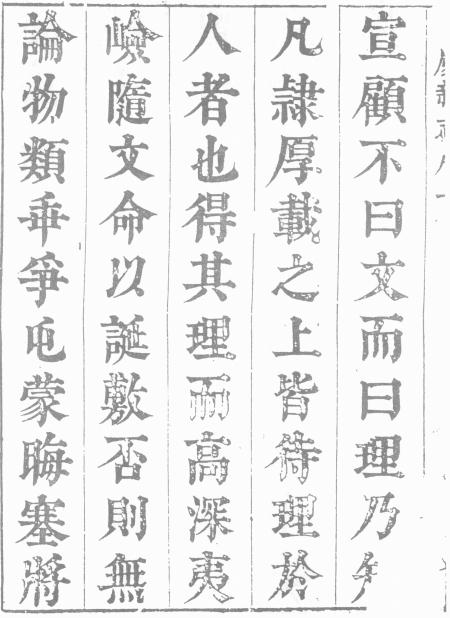 宣顧不曰文而曰理乃
凡隷厚載之上皆待理於
人者也得其理而高深夷
嶮隨文命以誕敷否則無
論物類乖爭屯蒙晦塞將